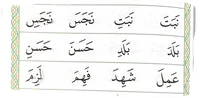 نَبَتَ نَبَتِ نَجَسَ نَجَسِ
بَلَدَ بَلَدِ حَسَنَ حَسَنِ
عَمِلَ شَهِدَ فَهِمَ لَزِمَ